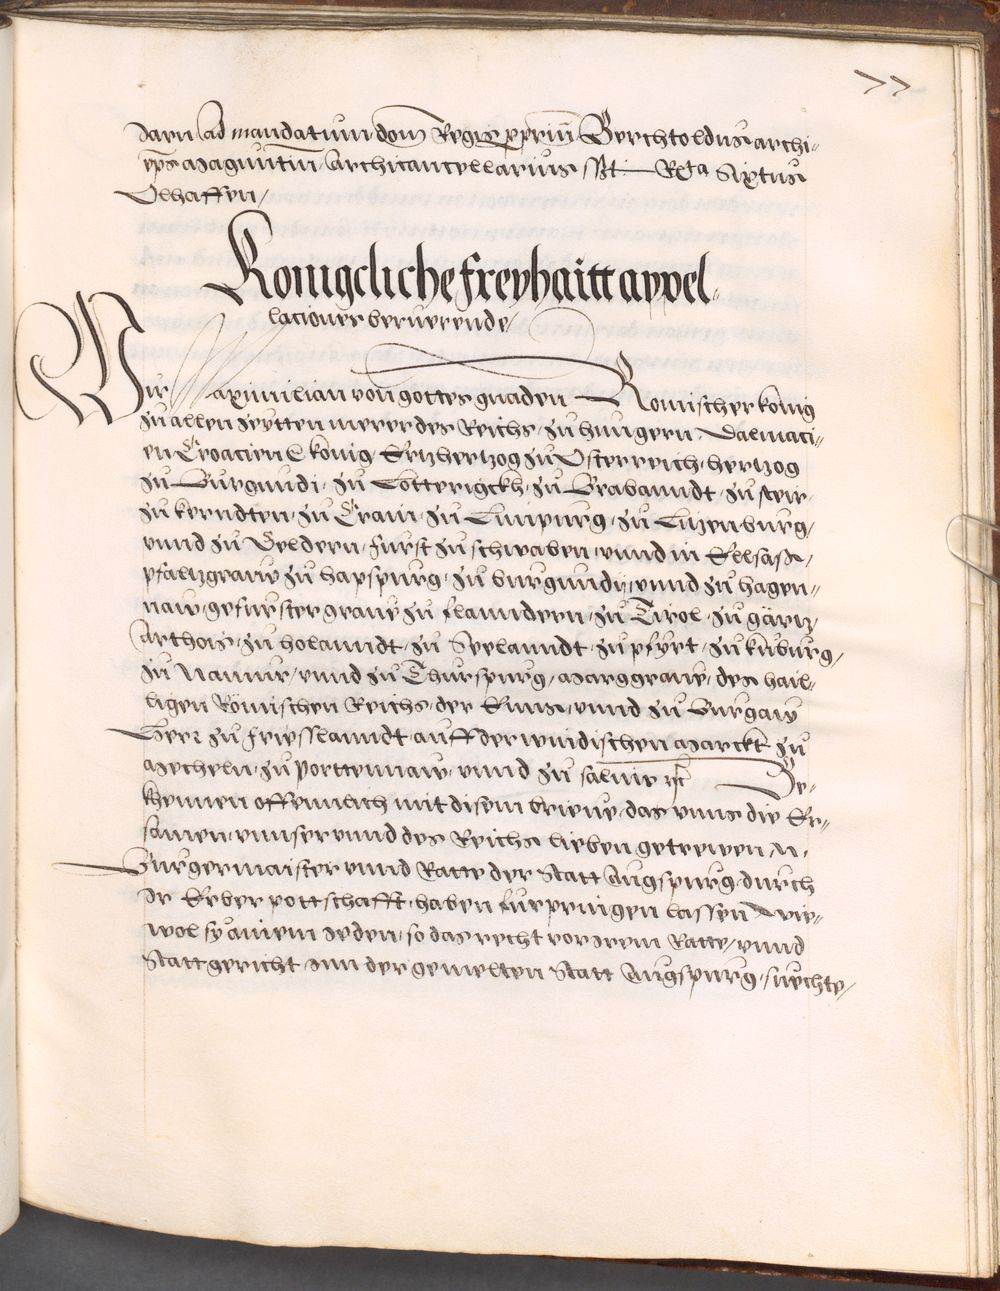 77
Jarn ad mandatum dom̄ Regis ꝓpriū Berchtoldus archi-
ep̄s Maguntin̄ Archicancellarius sßt Rta Sixtus
Olhaffen /
Konigcliche freyhaitt appel-
lationes beruerende /
Wir Maximilian von gottes gnaden Romischer konig
zu allen zeytten merer des Reichs, zu hungern, Dalmaci-
en Croacien ꝛc konig Ertzhertzog zu Osterreich, hertzog
zu Burgundi, zu Lotterigckh, zu Brabanndt, zu steir,
zu kerndten, zu Crain, zu Limpurg, zu Lutzenburg,
vnnd zu Geldern, furst zu schwaben, vnnd in Ellsass,
pfaltzgraue zu hapspurg, zu burgundy, vnnd zu hagen-
naw, gefurster graue zu flanndern, zu Tirol, zu gärtz,
Arthois, zu holanndt, zu Seelanndt, zu pfyrt, zu kyburg,
zu Namur, vnnd zu Thurspurg, Marggraue, des hail-
ligen Römischen Reichs, der Enns, vnnd zu Burgaw
Herr zu friesslanndt, auff der windischen Marckt zu
Mecheln, zu porttennaw, vnnd zu salme ꝛc Be-
khennen offennlich mit disem brieue, das vnns die Er-
samen, vnnser vnnd des Reichs lieben getrewen N.
Burgermaister vnnd Ratte der Statt Augspurg, durch
Ir Erber pottschafft, haben furpringen lassen Wie-
wol sy ainem Jeden, so das recht vor Jrem Ratte, vnnd
Stattgericht, Jnn der gemelten Statt Augspurg, suechte /